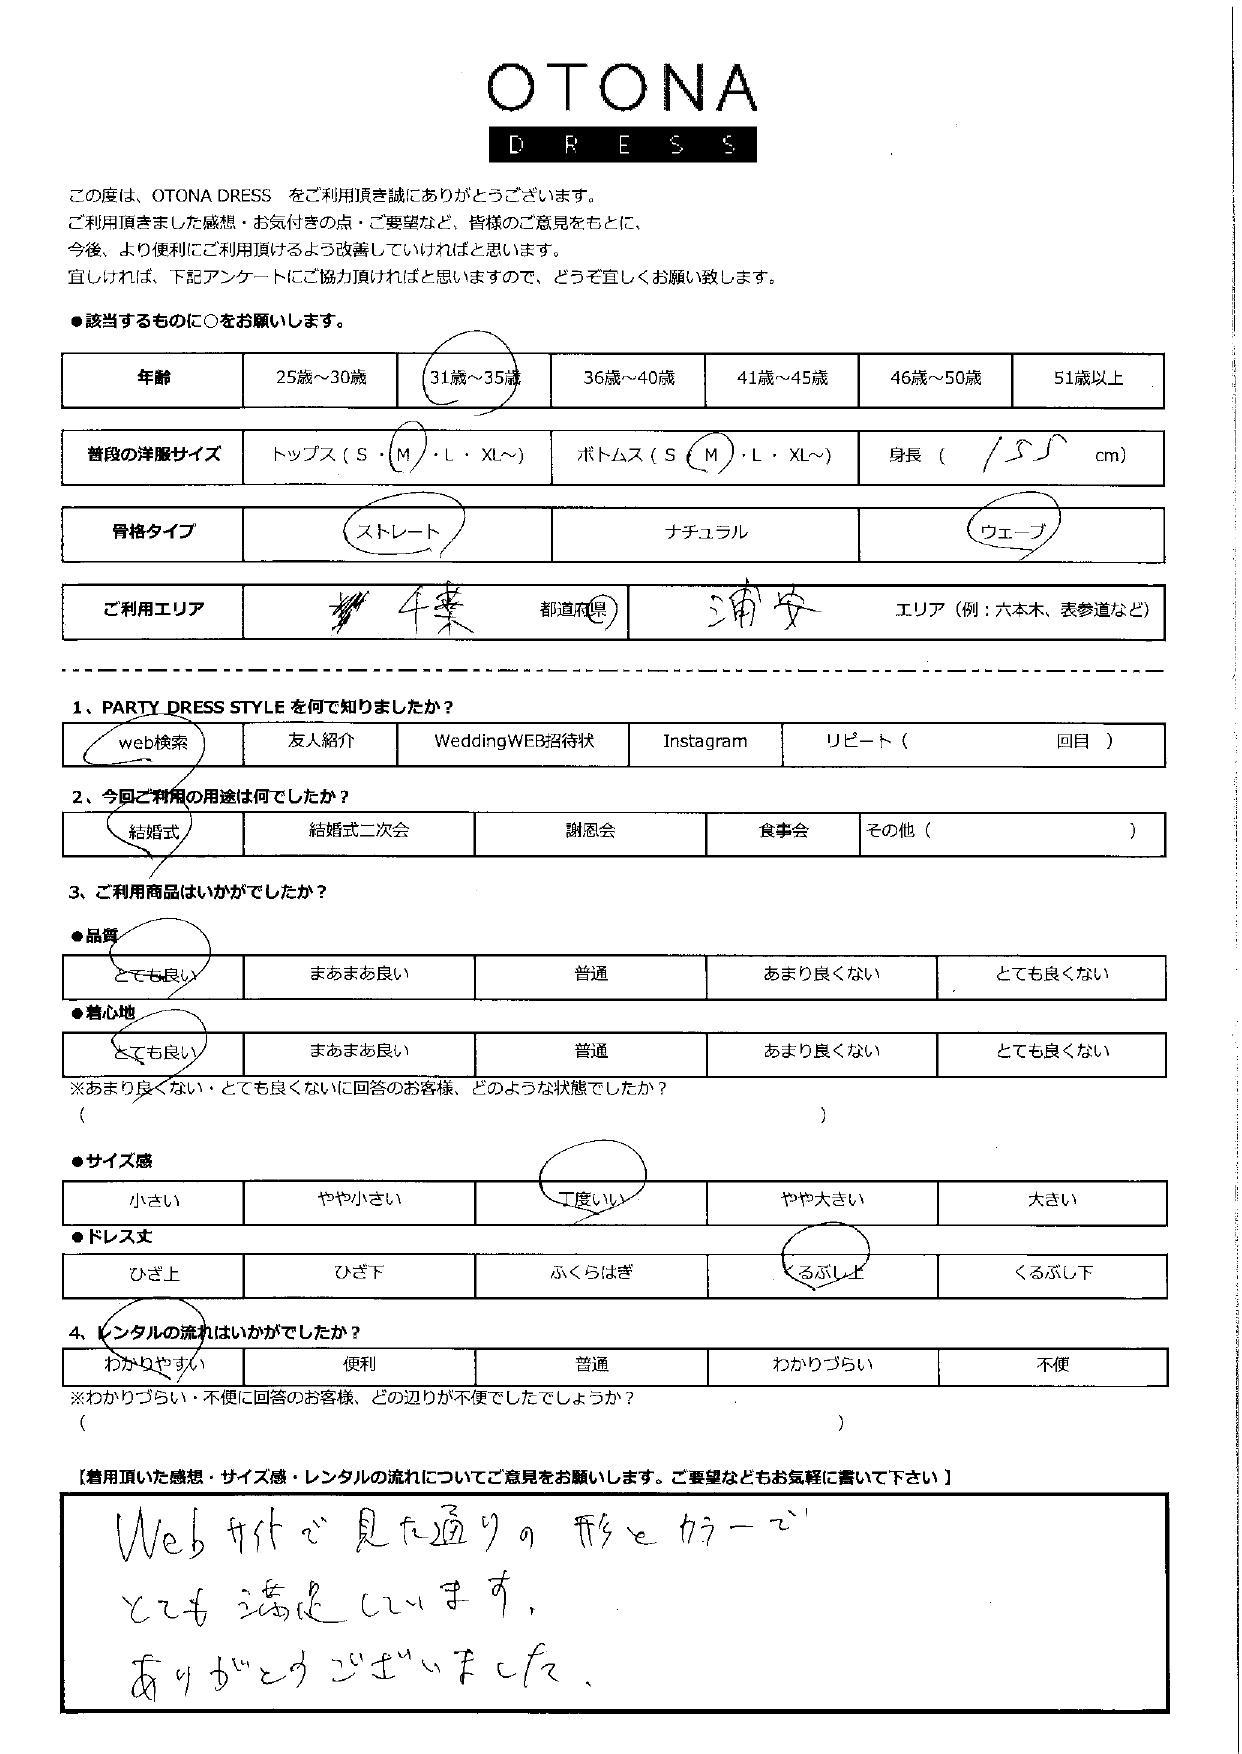 OTONA
DRESS
この度は、OTONA DRESS　をご利用頂き誠にありがとうございます。
ご利用頂きました感想・お気付きの点・ご要望など、皆様のご意見をもとに、
今後、より便利にご利用頂けるよう改善していければと思います。
宜しければ、下記アンケートにご協力頂ければと思いますので、どうぞ宜しくお願い致します。
●該当するものに○をお願いします。
年齢 25歳～30歳 31歳～35歳 36歳～40歳 41歳～45歳 46歳～50歳 51歳以上
普段の洋服サイズ トップス ( S ・ M ・ L ・ XL～) ボトムス ( S ・ M ・ L ・ XL～) 身長 ( 155 cm)
骨格タイプ ストレート ナチュラル ウェーブ
ご利用エリア 千葉 都道府県 浦安 エリア（例：六本木、表参道など）
1、PARTY DRESS STYLE を何で知りましたか？
web検索 友人紹介 WeddingWEB招待状 Instagram リピート ( 回目 )
2、今回ご利用の用途は何でしたか？
結婚式 結婚式二次会 謝恩会 食事会 その他 ( )
3、ご利用商品はいかがでしたか？
●品質
とても良い まあまあ良い 普通 あまり良くない とても良くない
●着心地
とても良い まあまあ良い 普通 あまり良くない とても良くない
※あまり良くない・とても良くないに回答のお客様、どのような状態でしたか？
( )
●サイズ感
小さい やや小さい 丁度いい やや大きい 大きい
●ドレス丈
ひざ上 ひざ下 ふくらはぎ くるぶし上 くるぶし下
4、レンタルの流れはいかがでしたか？
わかりやすい 便利 普通 わかりづらい 不便
※わかりづらい・不便に回答のお客様、どの辺りが不便でしたでしょうか？
( )
【着用頂いた感想・サイズ感・レンタルの流れについてご意見をお願いします。ご要望などもお気軽に書いて下さい 】
Webサイトで見た通りの形とカラーで
とても満足しています。
ありがとうございました。